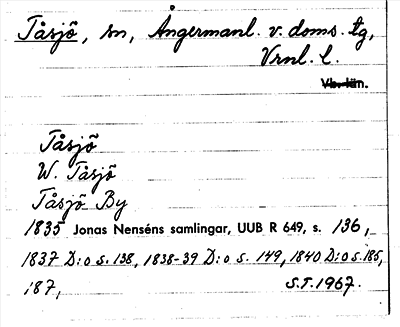 Tåsjö, sn, Ångermanl. v. doms. tg,
Vrnl. l.
Vb. län.
Tåsjö
W. Tåsjö
Tåsjö By
1835 Jonas Nenséns samlingar, UUB R 649, s. 136,
1837 D:o s. 138, 1838-39 D:o s. 149, 1840 D:o s. 185,
187, S.T. 1967.